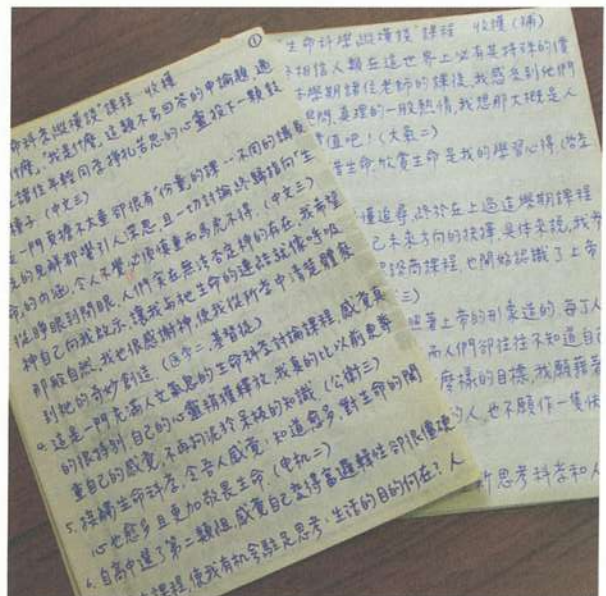 ①
命科學縱橫談"課程 收穫
什麼,"我是什麼,這類不易回答的申論題,過
諸位年輕同學掙扎苦思的心靈投下一顆
種子(中文三)
一門負擔不太重卻很有"份量"的課,,不同的講員
的見解都響引人深思,且一切討論終歸指向"生
命"的內涵,令人不覺慎重而馬虎不得.(中文三)
從睜眼到閉眼,人們實在無法否定神的存在,我希望
神自己向我啟示,讓我與祂生命的連結就像呼吸
那般自然,我也很感謝神,使我從所學中清楚體察
到祂的奇妙創造.(醫學二,基督徒)
4.這是一門充滿人文氣息的生命科學討論課程,感覺真
的很特別,自己的心靈稍獲釋放,我真的比以前更尊
重自己的感覺,不再拘泥於呆板的知識.(公衛三)
5.接觸生命科學,令吾人感覺:知道愈多,對生命的關
心也愈多且更加敬畏生命.(电机二)
6.自高中選了第二類組,感覺自己變得富邏輯性卻很僵硬
課程,使我有机会駐足思考:生活的目的何在?人
"生命科學縱橫談"課程 收穫(補)
相信人類在這世界上必有其特殊的價
學期諸位老師的課後,我感受到他們
真理的一股熱情,我想那大概是人
值吧!(大氣二)
生命,欣賞生命是我的學習心得.
追尋,終於在上過這學期課程
己未來方向的抉擇,具体來說,我
諮商課程,也開始認識了上帝
三)
照著上帝的形象造的,每个人
而人們卻往往不知道自己
麼樣的目標,我願藉著
的人,也不願作一隻
所思考科學和人